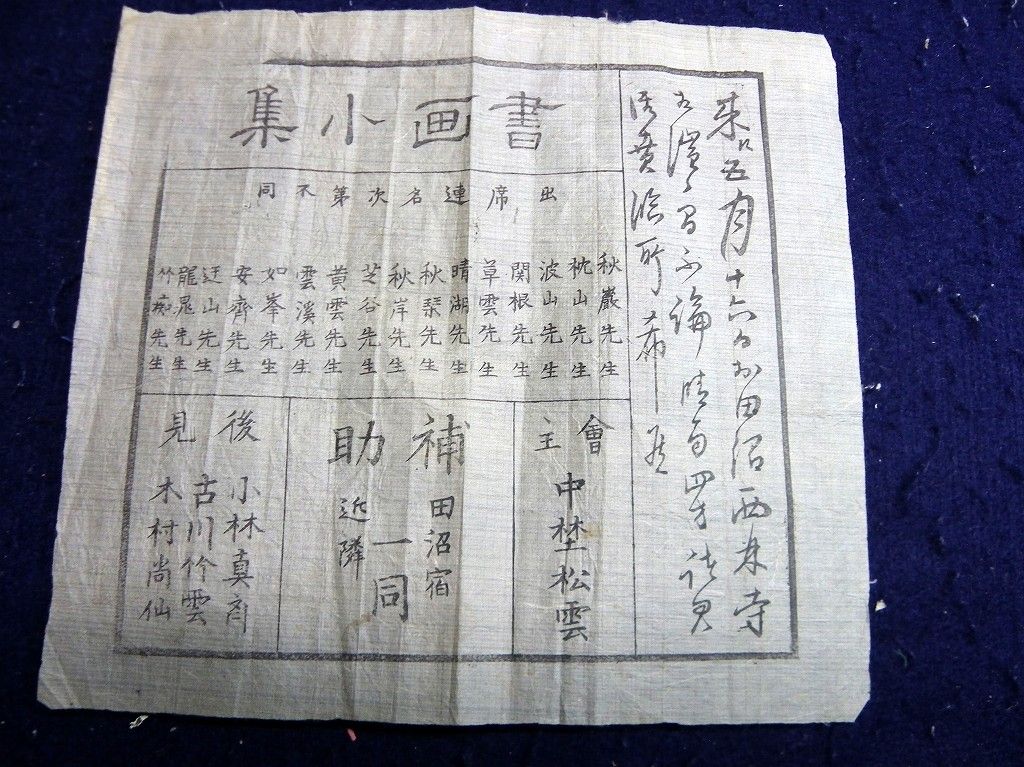 来ル五月十六日於田沼西林寺
不論晴雨四方諸君
賁臨所希
書画小集
出席連名次第不同
秋巖先生
枕山先生
波山先生
関根先生
草雲先生
晴湖先生
秋琹先生
秋岸先生
芝谷先生
黄雲先生
雲溪先生
如峯先生
安齊先生
迂山先生
龍晁先生
竹痴先生
會主
中埜松雲
補助
田沼宿
一同
近隣
後見
小林真斎
古川竹雲
木村尚仙